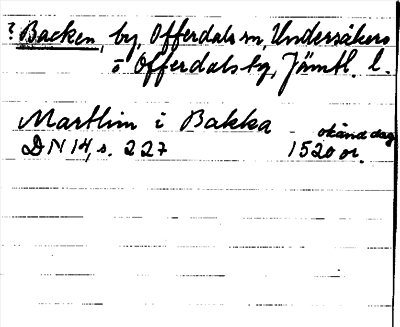 ? Backen, by, Offerdals sn, Undersåkers
o Offerdals tg, Jämtl. l.
Marthin i Bakka okänd dag
DN 14, s. 227 1520 or.